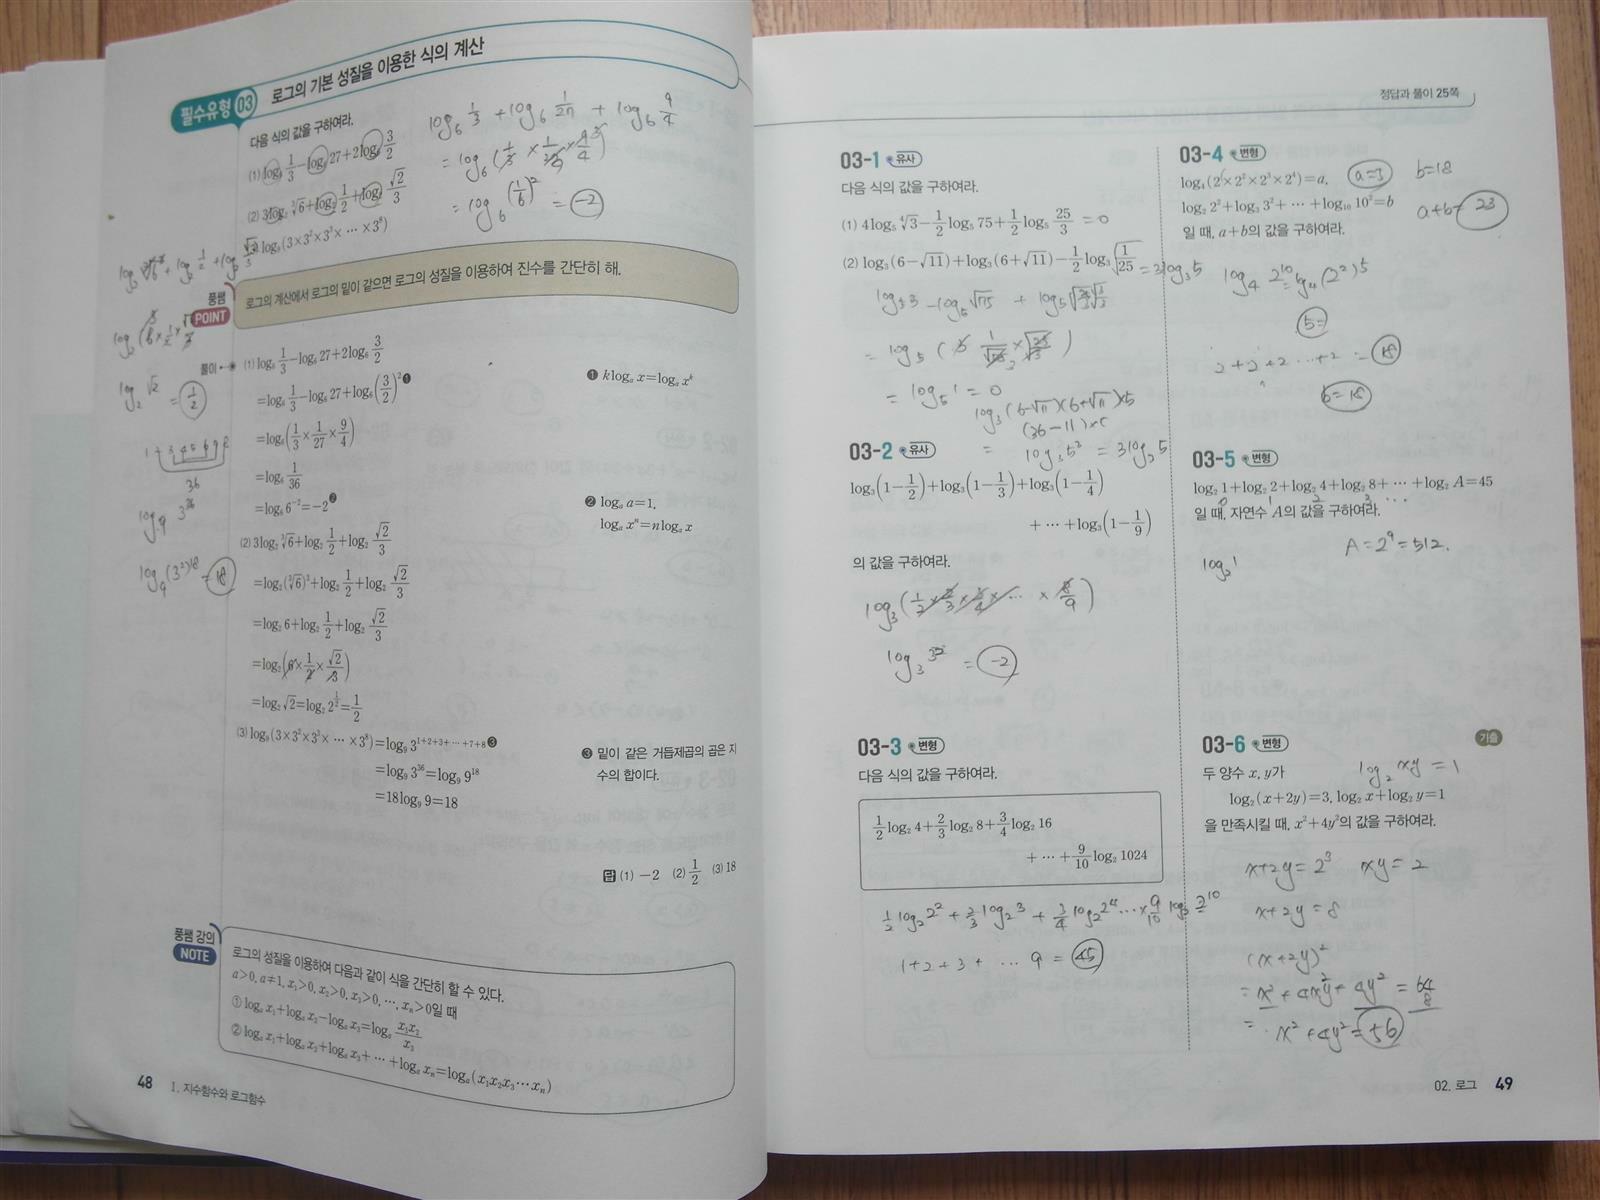 필수유형 03 로그의 기본 성질을 이용한 식의 계산
다음 식의 값을 구하여라.
(1) log₆ 1/3 − log₆ 27 + 2log₆ 3/2
(2) 3log₂ ∛6 + log₂ 1/2 + log₂ √2/3
log₉(3×3²×3³× ⋯ ×3⁸)
log₆ 1/3 + log₆ 1/27 + log₆ 9/4
= log₆ (1/3 × 1/27 × 9/4)
= log₆ (1/6)² = -2
풍쌤 POINT
로그의 계산에서 로그의 밑이 같으면 로그의 성질을 이용하여 진수를 간단히 해.
log₂ √2 = 1/2
36
log₉ 3³⁶
log₉ (3²)¹⁸ = 18
풀이
(1) log₆ 1/3 − log₆ 27 + 2log₆ 3/2
=log₆ 1/3 − log₆ 27 + log₆ (3/2)² ❶
❶ k logₐ x = logₐ xᵏ
=log₆(1/3 × 1/27 × 9/4)
=log₆ 1/36
=log₆ 6⁻² = −2 ❷
❷ logₐ a=1,
logₐ xⁿ=n logₐ x
(2) 3log₂ ∛6 + log₂ 1/2 + log₂ √2/3
=log₂ (∛6)³ + log₂ 1/2 + log₂ √2/3
=log₂ 6 + log₂ 1/2 + log₂ √2/3
=log₂(6 × 1/2 × √2/3)
=log₂ √2 = log₂ 2^(1/2) = 1/2
(3) log₉(3×3²×3³× ⋯ ×3⁸)=log₉ 3^(1+2+3+⋯+7+8) ❸
❸ 밑이 같은 거듭제곱의 곱은 지
수의 합이다.
=log₉ 3³⁶=log₉ 9¹⁸
=18log₉ 9=18
답 (1) −2 (2) 1/2 (3) 18
풍쌤 강의 NOTE
로그의 성질을 이용하여 다음과 같이 식을 간단히 할 수 있다.
a>0, a≠1, x₁>0, x₂>0, x₃>0, ⋯, xₙ>0일 때
① logₐ x₁+logₐ x₂−logₐ x₃=logₐ x₁x₂/x₃
② logₐ x₁+logₐ x₂+logₐ x₃+ ⋯ +logₐ xₙ=logₐ(x₁x₂x₃⋯xₙ)
48 I. 지수함수와 로그함수
정답과 풀이 25쪽
03-1 유사
다음 식의 값을 구하여라.
(1) 4log₅ ∜3 − 1/2 log₅ 75 + 1/2 log₅ 25/3 = 0
(2) log₃(6−√11)+log₃(6+√11)−1/2 log₃ √(1/25) = 3log₃5
= log₅ 1 = 0
log₃ (6-√11)×(6+√11)×5
(36-11)×5
= log₃ 5³ = 3log₃ 5
03-2 유사
log₃(1−1/2)+log₃(1−1/3)+log₃(1−1/4)
+ ⋯ +log₃(1−1/9)
의 값을 구하여라.
log₃ (1/2 × 2/3 × 3/4 × ⋯ × 8/9)
log₃ 3⁻² = -2
03-3 변형
다음 식의 값을 구하여라.
1/2 log₂ 4 + 2/3 log₂ 8 + 3/4 log₂ 16
+ ⋯ + 9/10 log₂ 1024
1/2 log₂ 2² + 2/3 log₂ 2³ + 3/4 log₂ 2⁴ ⋯ × 9/10 log₂ 2¹⁰
1+2+3+ ⋯ 9 = 45
03-4 변형
log₄(2×2²×2³×2⁴)=a, a=3 b=18
log₂ 2²+log₃ 3²+ ⋯ +log₁₀ 10²=b
일 때, a+b의 값을 구하여라.
a+b= 23
log₄ 2¹⁰ = log₄ (2²)⁵
5=
2+2+2 ⋯ +2 = 18
b=18
03-5 변형
log₂ 1+log₂ 2+log₂ 4+log₂ 8+ ⋯ +log₂ A=45
일 때, 자연수 A의 값을 구하여라.
0 1 2 3 ⋯
A=2⁹=512.
log₂ 1
03-6 변형 기출
두 양수 x, y가 log₂ xy = 1
log₂(x+2y)=3, log₂ x+log₂ y=1
을 만족시킬 때, x²+4y²의 값을 구하여라.
x+2y=2³ xy=2
x+2y=8
(x+2y)²
= x²+4xy+4y² = 64
8
= x²+4y² = 56
02. 로그 49